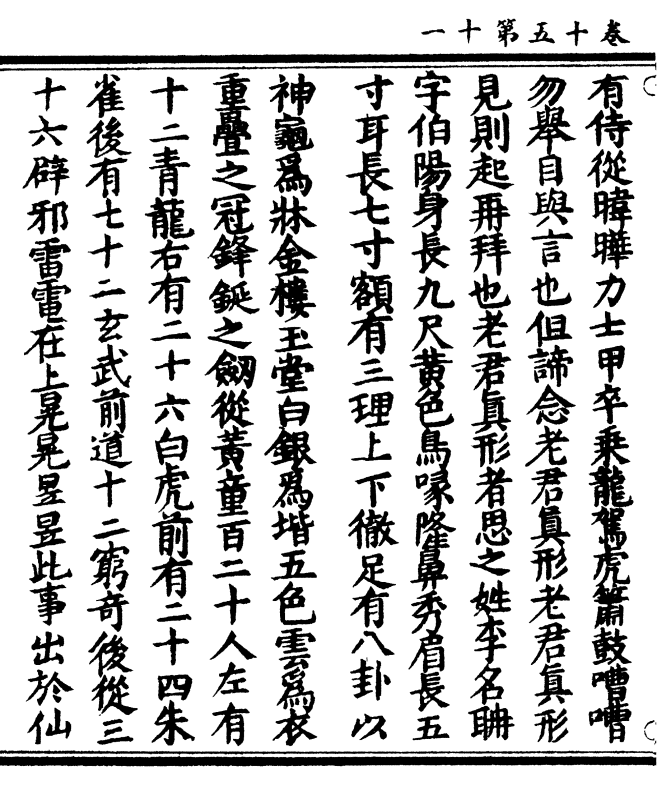 卷十五第十一
有侍從暐曄力士甲卒乘龍駕虎簫鼓嘈嘈
勿舉目與言也但諦念老君真形老君真形
見則起再拜也老君真形者思之姓李名聃
字伯陽身長九尺黃色鳥喙隆鼻秀眉長五
寸耳長七寸額有三理上下徹足有八卦以
神龜爲牀金樓玉堂白銀爲堦五色雲爲衣
重疊之冠鋒鋋之劒從黃童百二十人左有
十二青龍右有二十六白虎前有二十四朱
雀後有七十二玄武前道十二窮奇後從三
十六辟邪雷電在上晃晃昱昱此事出於仙